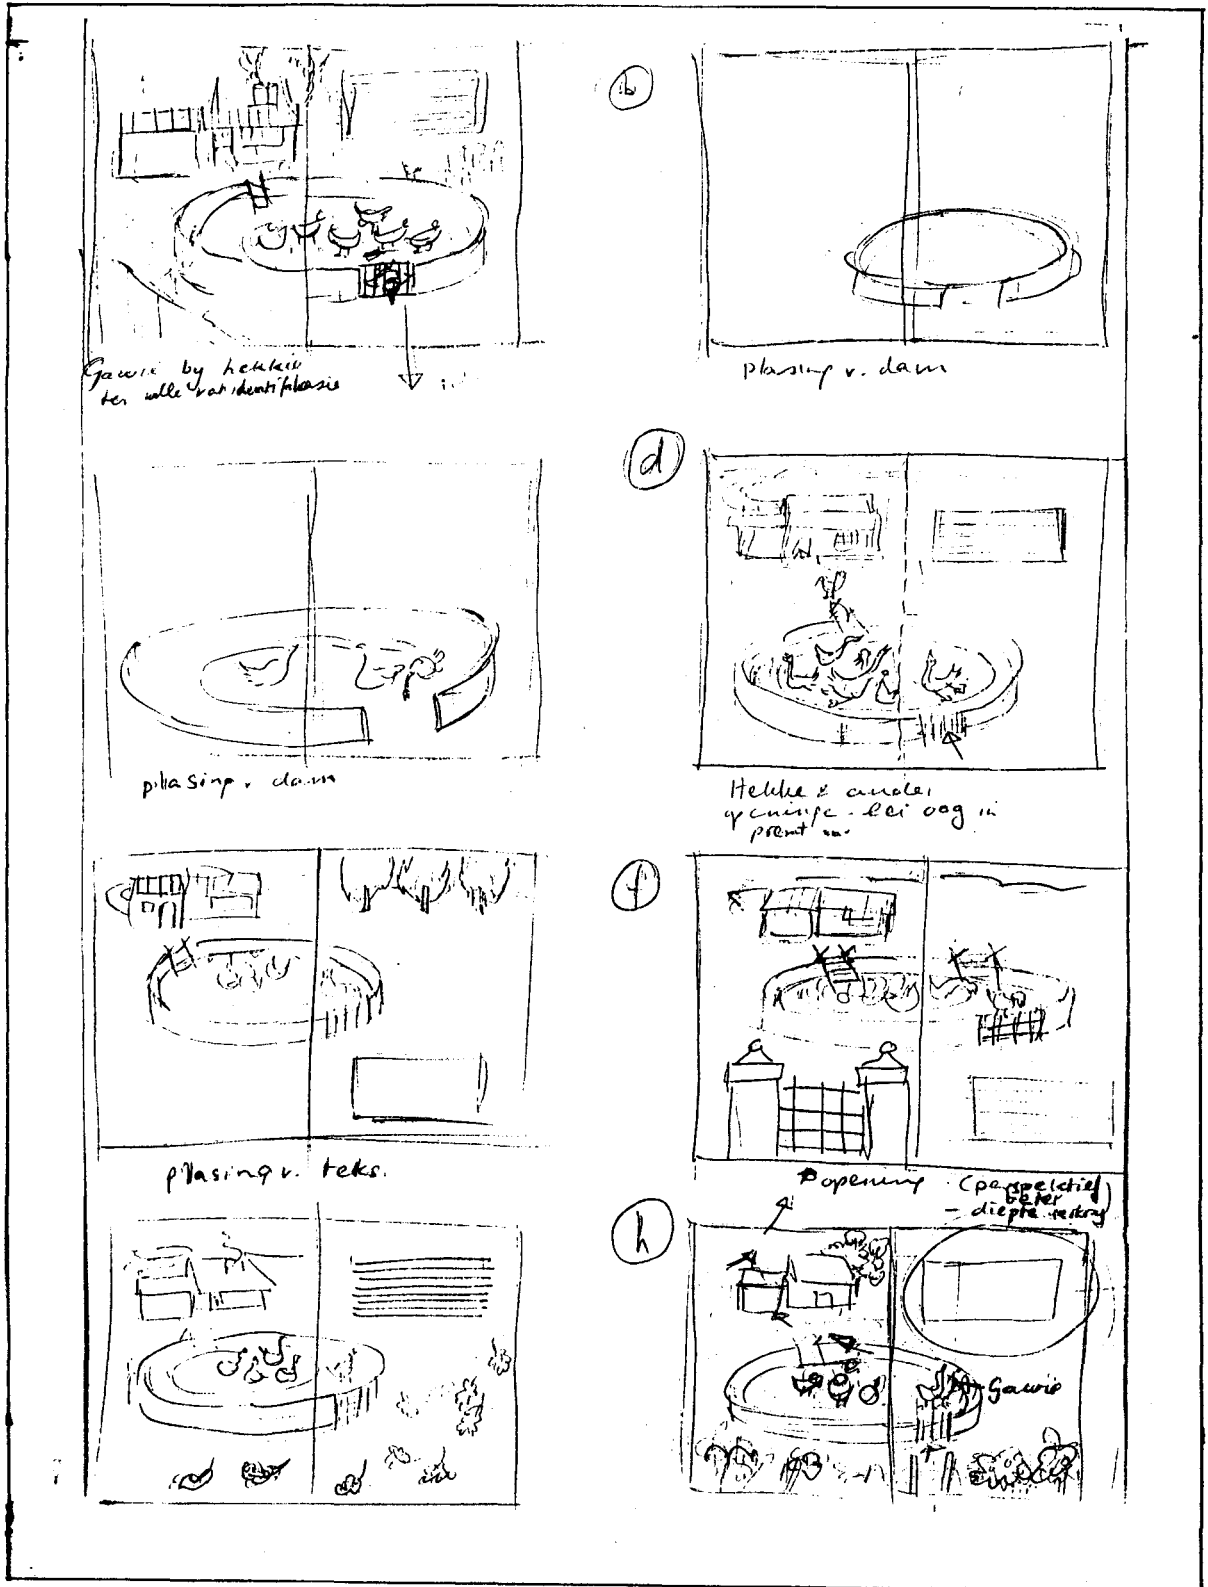 b
Gawie by hekkie
ter wille van identifikasie
plasing v. dam
d
plasing v. dam
Hekke & ander
openinge lei oog in
f
plasing v. teks.
opening (perspektief
beter
- diepte verkry)
h
Gawie